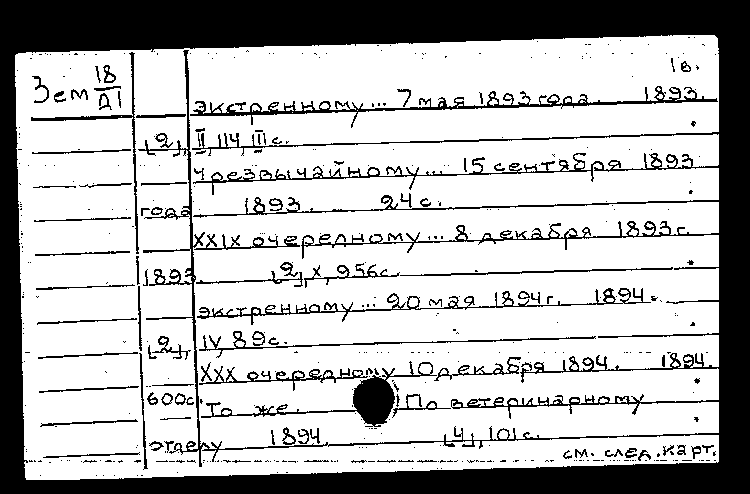 1в.
Зем 18/Д1
экстренному... 7 мая 1893 года. 1893.
[2], II, 114, III с.
чрезвычайному... 15 сентября 1893
года 1893. 24 с.
XXIX очередному... 8 декабря 1893 г.
1893. [2], X, 956 с.
экстренному... 20 мая 1894 г. 1894.
[2], IV, 89 с.
XXX очередному 10 декабря 1894. 1894.
600 с. То же. По ветеринарному
отделу 1894. [4], 101 с.
см. след. карт.